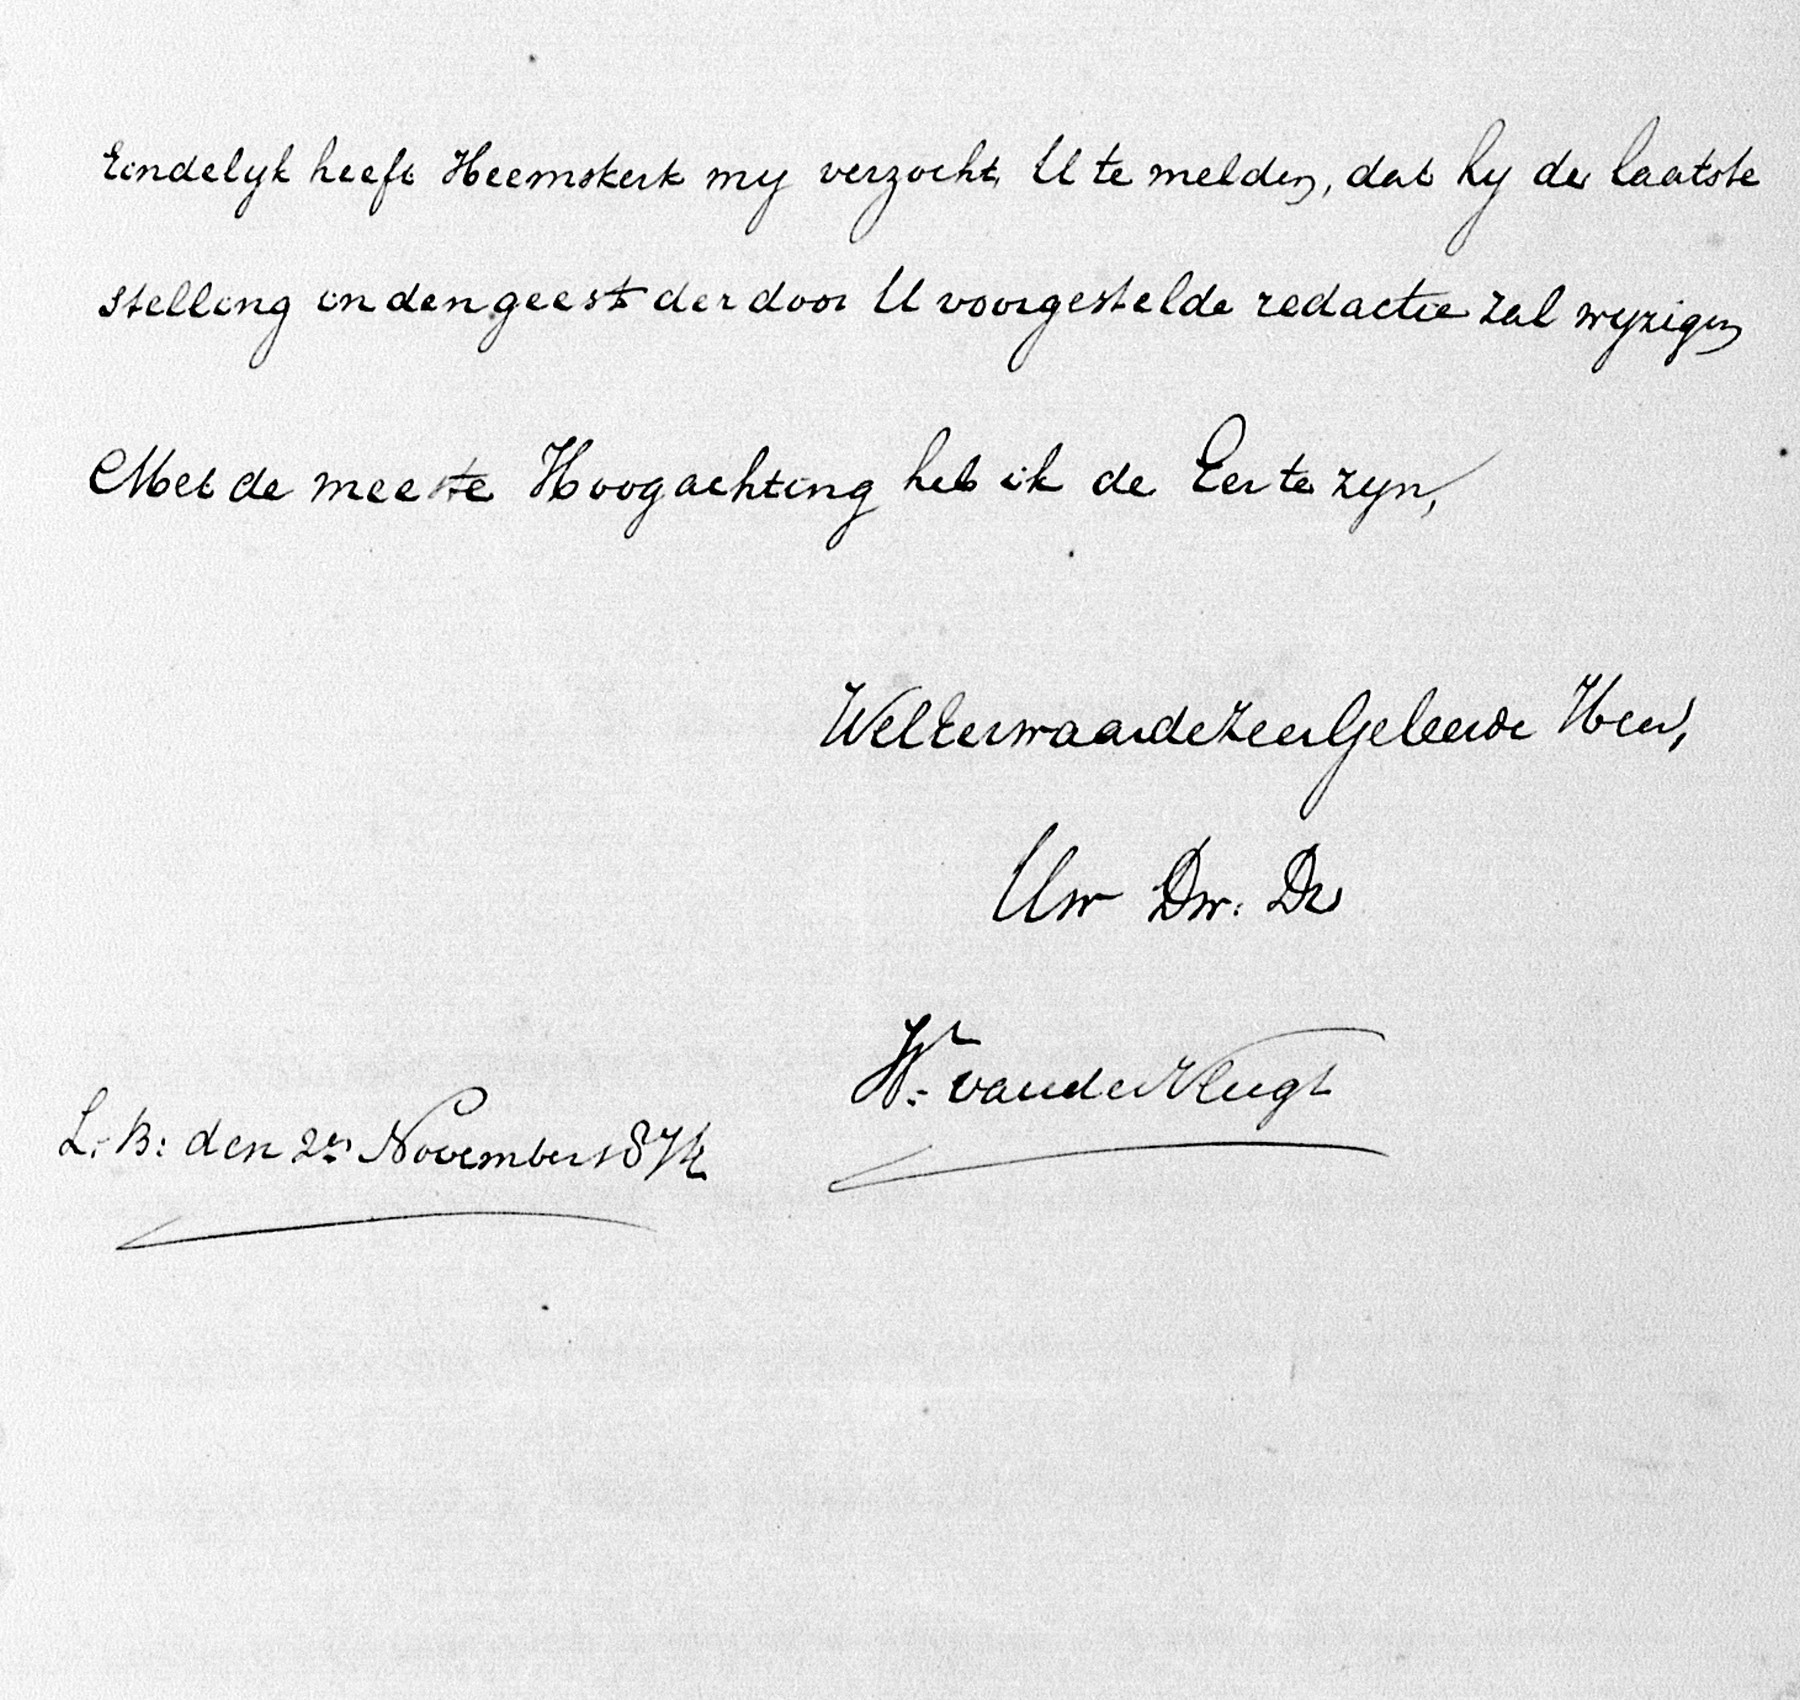 Eindelyk heeft Heemskerk my verzocht U te melden, dat hy de laatste
stelling in den geest der door U voorgestelde redactie zal wyzigen
Met de meeste Hoogachting heb ik de Eer te zyn,
WelEerwaardeZeerGeleerde Heer,
Uw Dw. Dr
W. van der Vlugt
L. B: den 2en November 1874